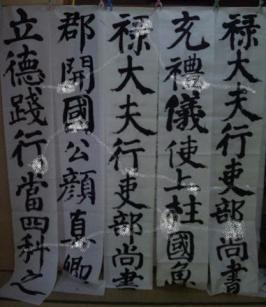 禄大夫行吏部尚書
充禮儀使上柱國魯
禄大夫行吏部尚書
郡開國公顔真卿
立德踐行當四科之